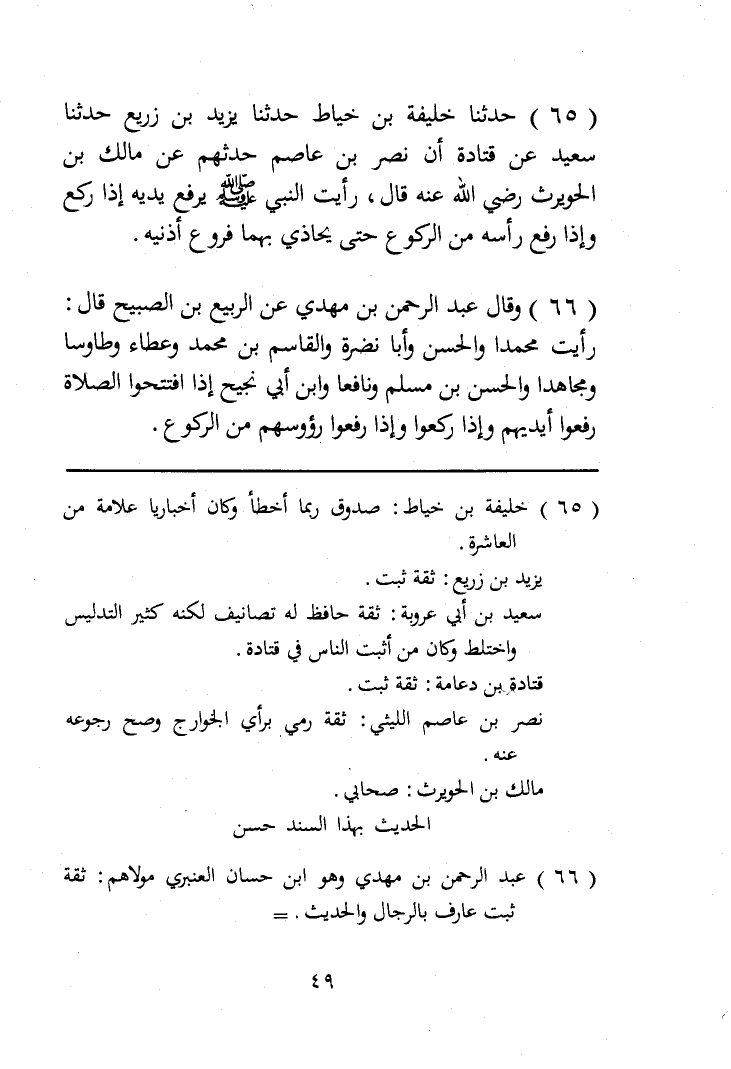 ( ٦٥ ) حدثنا خليفة بن خياط حدثنا يزيد بن زريع حدثنا
سعيد عن قتادة أن نصر بن عاصم حدثهم عن مالك بن
الحويرث رضي الله عنه قال، رأيت النبي ﷺ يرفع يديه إذا ركع
وإذا رفع رأسه من الركوع حتى يحاذي بهما فروع أذنيه .
( ٦٦ ) وقال عبد الرحمن بن مهدي عن الربيع بن الصبيح قال :
رأيت محمدا والحسن وأبا نضرة والقاسم بن محمد وعطاء وطاوسا
ومجاهدا والحسن بن مسلم ونافعا وابن أبي نجيح إذا افتتحوا الصلاة
رفعوا أيديهم وإذا ركعوا وإذا رفعوا رؤوسهم من الركوع .
( ٦٥ ) خليفة بن خياط : صدوق ربما أخطأ وكان أخباريا علامة من
العاشرة .
يزيد بن زريع : ثقة ثبت .
سعيد بن أبي عروبة : ثقة حافظ له تصانيف لكنه كثير التدليس
واختلط وكان من أثبت الناس في قتادة .
قتادة بن دعامة : ثقة ثبت .
نصر بن عاصم الليثي : ثقة رمي برأي الخوارج وصح رجوعه
عنه .
مالك بن الحويرث : صحابي .
الحديث بهذا السند حسن
( ٦٦ ) عبد الرحمن بن مهدي وهو ابن حسان العنبري مولاهم : ثقة
ثبت عارف بالرجال والحديث . =
٤٩